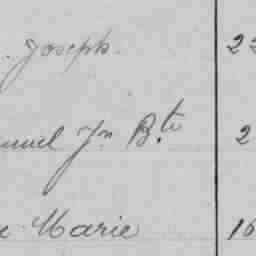 Joseph 22
Jn Bte 2
Marie 16